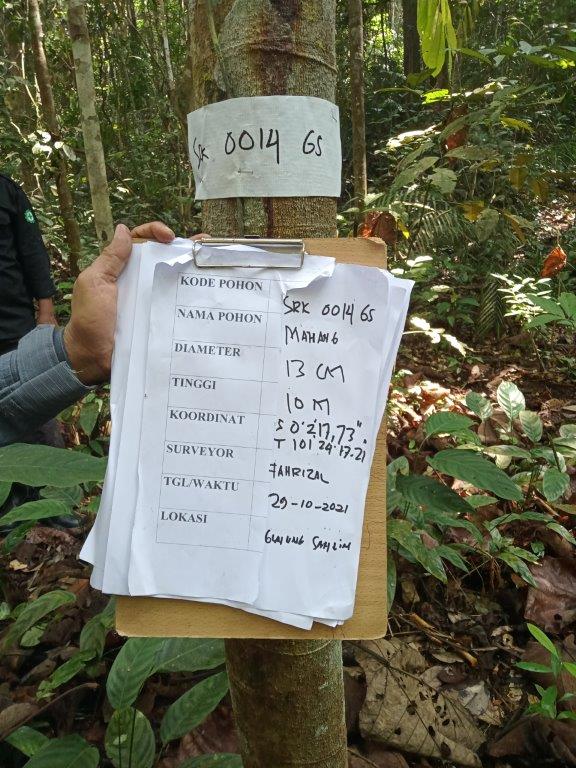 SRK 0014 GS
KODE POHON SRK 0014 GS
NAMA POHON MAHANG
DIAMETER 13 CM
TINGGI 10 M
KOORDINAT S 0°2'17,73".
T 101°29'17.21
SURVEYOR FAHRIZAL
TGL/WAKTU 29-10-2021
LOKASI GUNUNG SAHILAN